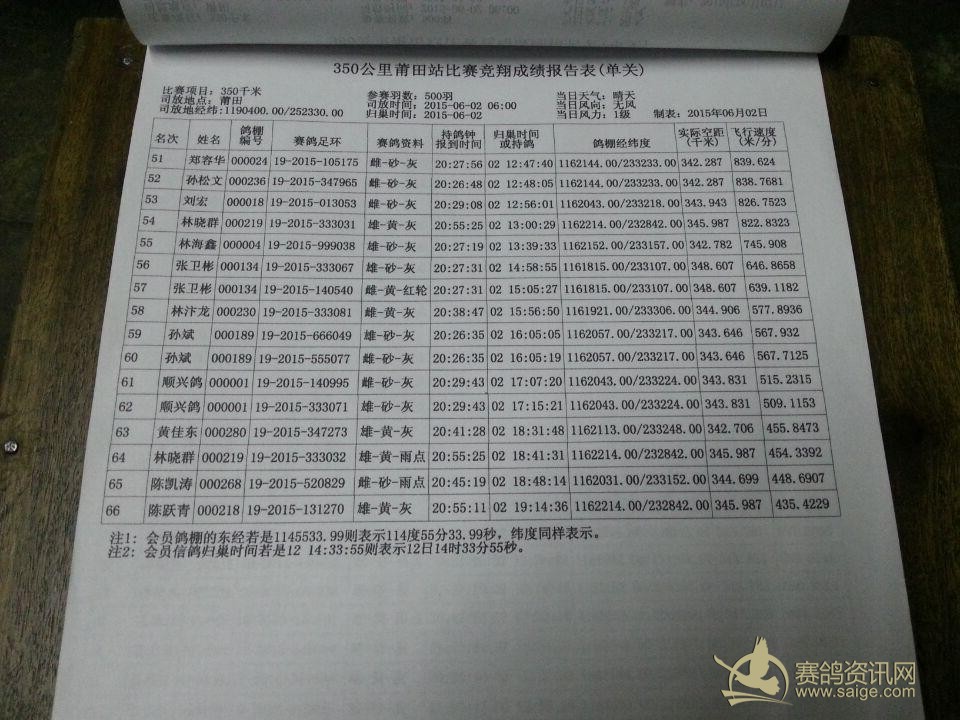 350公里莆田站比赛竞翔成绩报告表(单关)
比赛项目: 350千米 参赛羽数: 500羽 当日天气: 晴天
司放地点: 莆田 司放时间: 2015-06-02 06:00 当日风向: 无风
司放地经纬:1190400.00/252330.00 归巢时间: 2015-06-02 当日风力: 1级 制表: 2015年06月02日
名次 姓名 鸽棚编号 赛鸽足环 赛鸽资料 持鸽钟报到时间 归巢时间或持鸽 鸽棚经纬度 实际空距(千米) 飞行速度(米/分)
51 郑容华 000024 19-2015-105175 雌-砂-灰 20:27:56 02 12:47:40 1162144.00/233233.00 342.287 839.624
52 孙松文 000236 19-2015-347965 雌-砂-灰 20:26:48 02 12:48:05 1162144.00/233233.00 342.287 838.7681
53 刘宏 000018 19-2015-013053 雌-砂-灰 20:29:08 02 12:56:01 1162043.00/233218.00 343.943 826.7523
54 林晓群 000219 19-2015-333031 雄-黄-灰 20:55:25 02 13:00:29 1162214.00/232842.00 345.987 822.8323
55 林海鑫 000004 19-2015-999038 雄-砂-灰 20:27:19 02 13:39:33 1162152.00/233157.00 342.782 745.908
56 张卫彬 000134 19-2015-333067 雄-砂-灰 20:27:31 02 14:58:55 1161815.00/233107.00 348.607 646.8658
57 张卫彬 000134 19-2015-140540 雌-黄-红轮 20:27:31 02 15:05:27 1161815.00/233107.00 348.607 639.1182
58 林汴龙 000230 19-2015-333081 雄-黄-灰 20:38:47 02 15:56:50 1161921.00/233306.00 344.906 577.8936
59 孙斌 000189 19-2015-666049 雌-砂-灰 20:26:35 02 16:05:05 1162057.00/233217.00 343.646 567.932
60 孙斌 000189 19-2015-555077 雌-砂-灰 20:26:35 02 16:05:19 1162057.00/233217.00 343.646 567.7125
61 顺兴鸽 000001 19-2015-140995 雌-砂-灰 20:29:43 02 17:07:20 1162043.00/233224.00 343.831 515.2315
62 顺兴鸽 000001 19-2015-333071 雄-砂-灰 20:29:43 02 17:15:21 1162043.00/233224.00 343.831 509.1153
63 黄佳东 000280 19-2015-347273 雄-黄-灰 20:41:28 02 18:31:48 1162113.00/233248.00 342.706 455.8473
64 林晓群 000219 19-2015-333032 雄-黄-雨点 20:55:25 02 18:41:31 1162214.00/232842.00 345.987 454.3392
65 陈凯涛 000268 19-2015-520829 雌-砂-雨点 20:45:19 02 18:48:14 1162031.00/233152.00 344.699 448.6907
66 陈跃青 000218 19-2015-131270 雄-黄-灰 20:55:11 02 19:14:36 1162214.00/232842.00 345.987 435.4229
注1: 会员鸽棚的东经若是1145533.99则表示114度55分33.99秒, 纬度同样表示。
注2: 会员信鸽归巢时间若是12 14:33:55则表示12日14时33分55秒。
赛鸽资讯网
www.saige.com